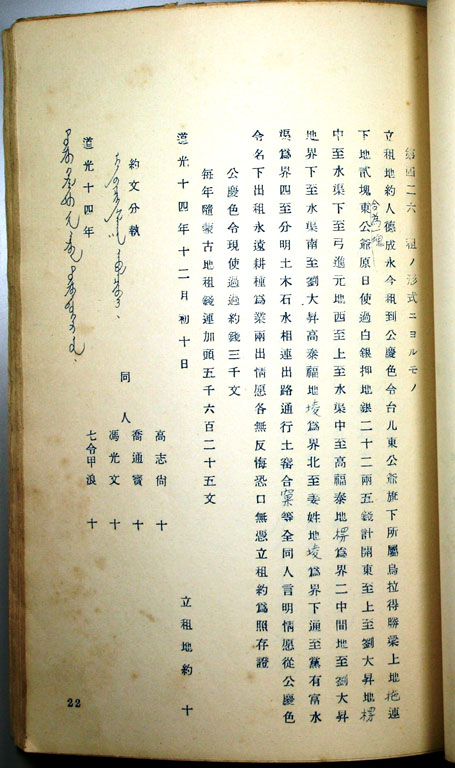 第四二六 租ノ形式ニヨルモノ
立租地約人德成永今租到公慶色令台几東公爺旗下所屬烏拉得勝梁上地拖連
下地貳塊合為一塊東公爺原日使過白銀押地銀二十二兩五錢計開東至上至劉大昇地楞
中至水渠下至弓進元地西至上至水渠中至高福泰地楞為界二中間地至劉大昇
地界下至水渠南至劉大昇高泰福地堎為界北至姜姓地堎為界下通至黨有富水
渠為界四至分明土木石水相連出路通行土窰合窠等全同人言明情愿從公慶色
令名下出租永遠耕種為業兩出情愿各無反悔恐口無憑立租約為照存證
公慶色令現使過過約錢三千文
每年隨蒙古地租錢連加頭五千六百二十五文
道光十四年十二月初十日
立租地約 十
同人
高志尙 十
喬通寶 十
馮光文 十
七令甲浪 十
約文分執
道光十四年
22